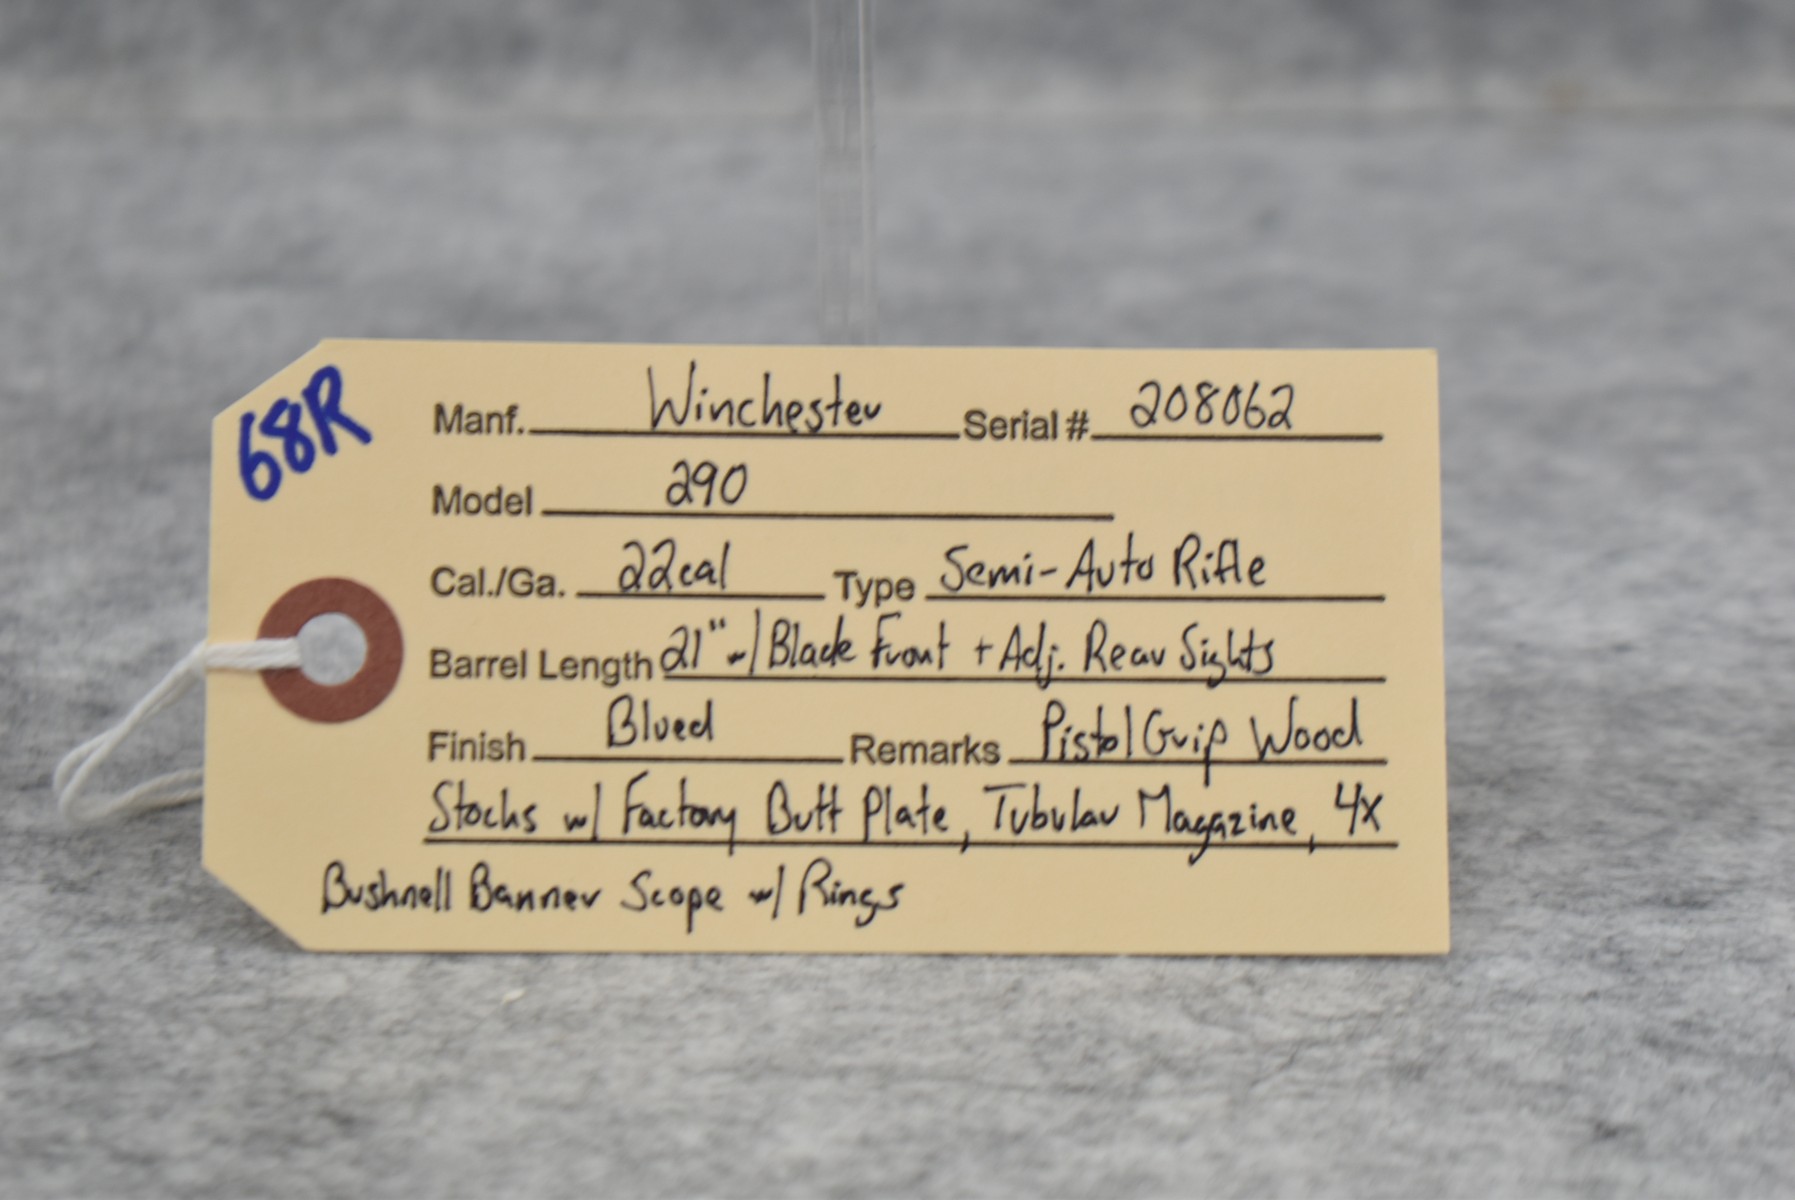 68R
Manf. Winchester Serial # 208062
Model 290
Cal./Ga. 22cal Type Semi-Auto Rifle
Barrel Length 21" w/ Blade Front + Adj. Rear Sights
Finish Blued Remarks Pistol Grip Wood
Stocks w/ Factory Butt Plate, Tubular Magazine, 4x
Bushnell Banner Scope w/ Rings